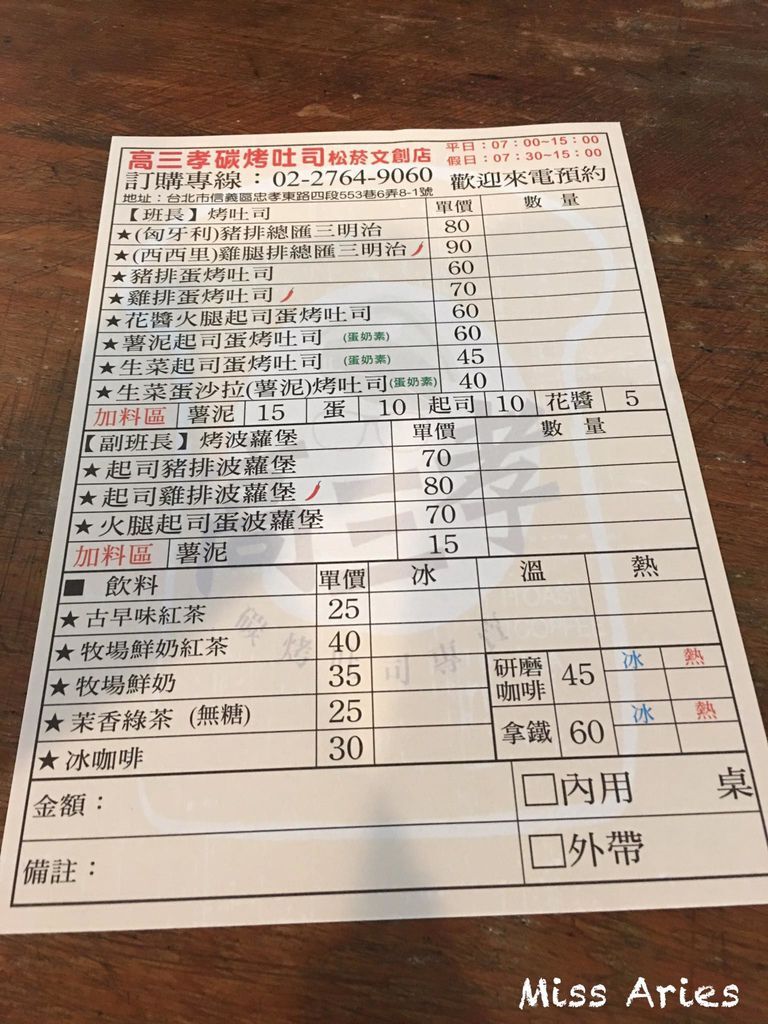 高三孝碳烤吐司松菸文創店
平日：07：00~15：00
假日：07：30~15：00
訂購專線：02-2764-9060 歡迎來電預約
地址：台北市信義區忠孝東路四段553巷6弄8-1號
【班長】烤吐司 單價 數 量
★(匈牙利)豬排總匯三明治 80
★(西西里)雞腿排總匯三明治 90
★豬排蛋烤吐司 60
★雞排蛋烤吐司 70
★花醬火腿起司蛋烤吐司 60
★薯泥起司蛋烤吐司 (蛋奶素) 60
★生菜起司蛋烤吐司 (蛋奶素) 45
★生菜蛋沙拉(薯泥)烤吐司(蛋奶素) 40
加料區 薯泥 15 蛋 10 起司 10 花醬 5
【副班長】烤波蘿堡 單價 數 量
★起司豬排波蘿堡 70
★起司雞排波蘿堡 80
★火腿起司蛋波蘿堡 70
加料區 薯泥 15
■ 飲料 單價 冰 溫 熱
★古早味紅茶 25
★牧場鮮奶紅茶 40
★牧場鮮奶 35
★茉香綠茶 (無糖) 25
★冰咖啡 30
研磨咖啡 45 冰 熱
拿鐵 60 冰 熱
金額：
□內用 桌
備註：
□外帶
高三孝
碳烤吐司專賣
Miss Aries